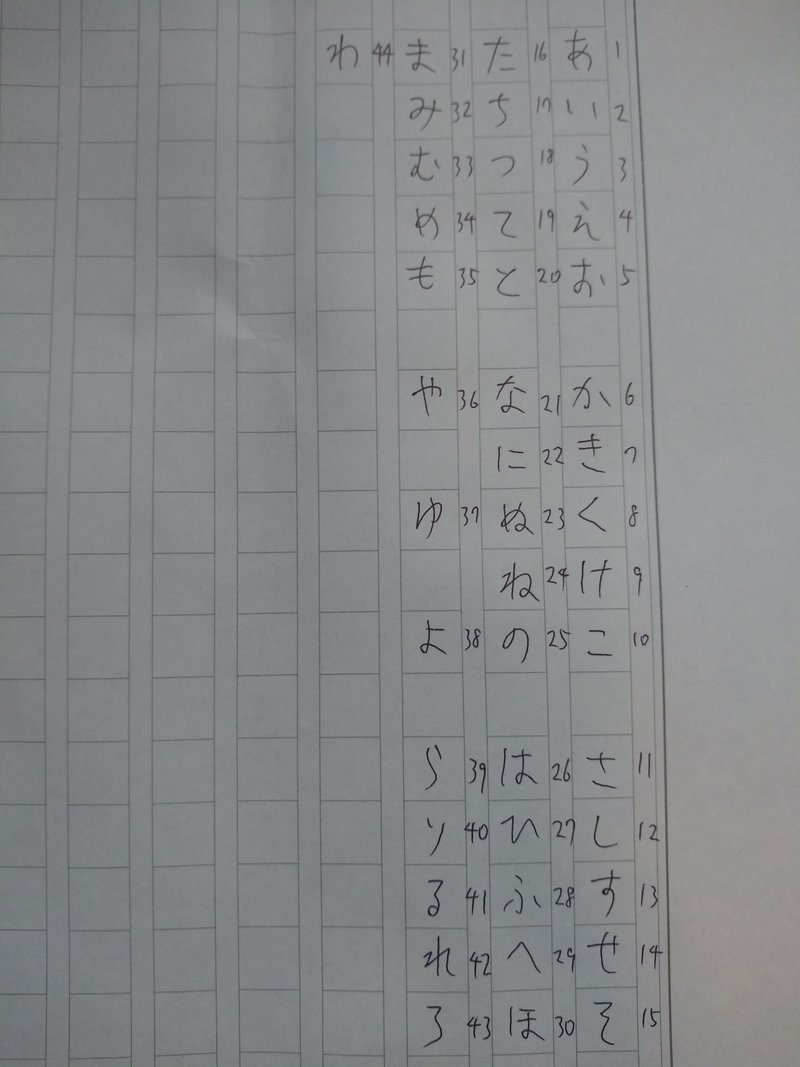 あ1
い2
う3
え4
お5
か6
き7
く8
け9
こ10
さ11
し12
す13
せ14
そ15
た16
ち17
つ18
て19
と20
な21
に22
ぬ23
ね24
の25
は26
ひ27
ふ28
へ29
ほ30
ま31
み32
む33
め34
も35
や36
ゆ37
よ38
ら39
り40
る41
れ42
ろ43
わ44